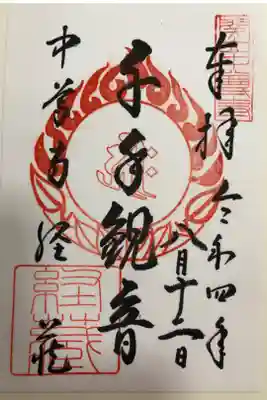 奉拝 令和四年
八月十二日
千手観音
中尊寺 経蔵
経蔵